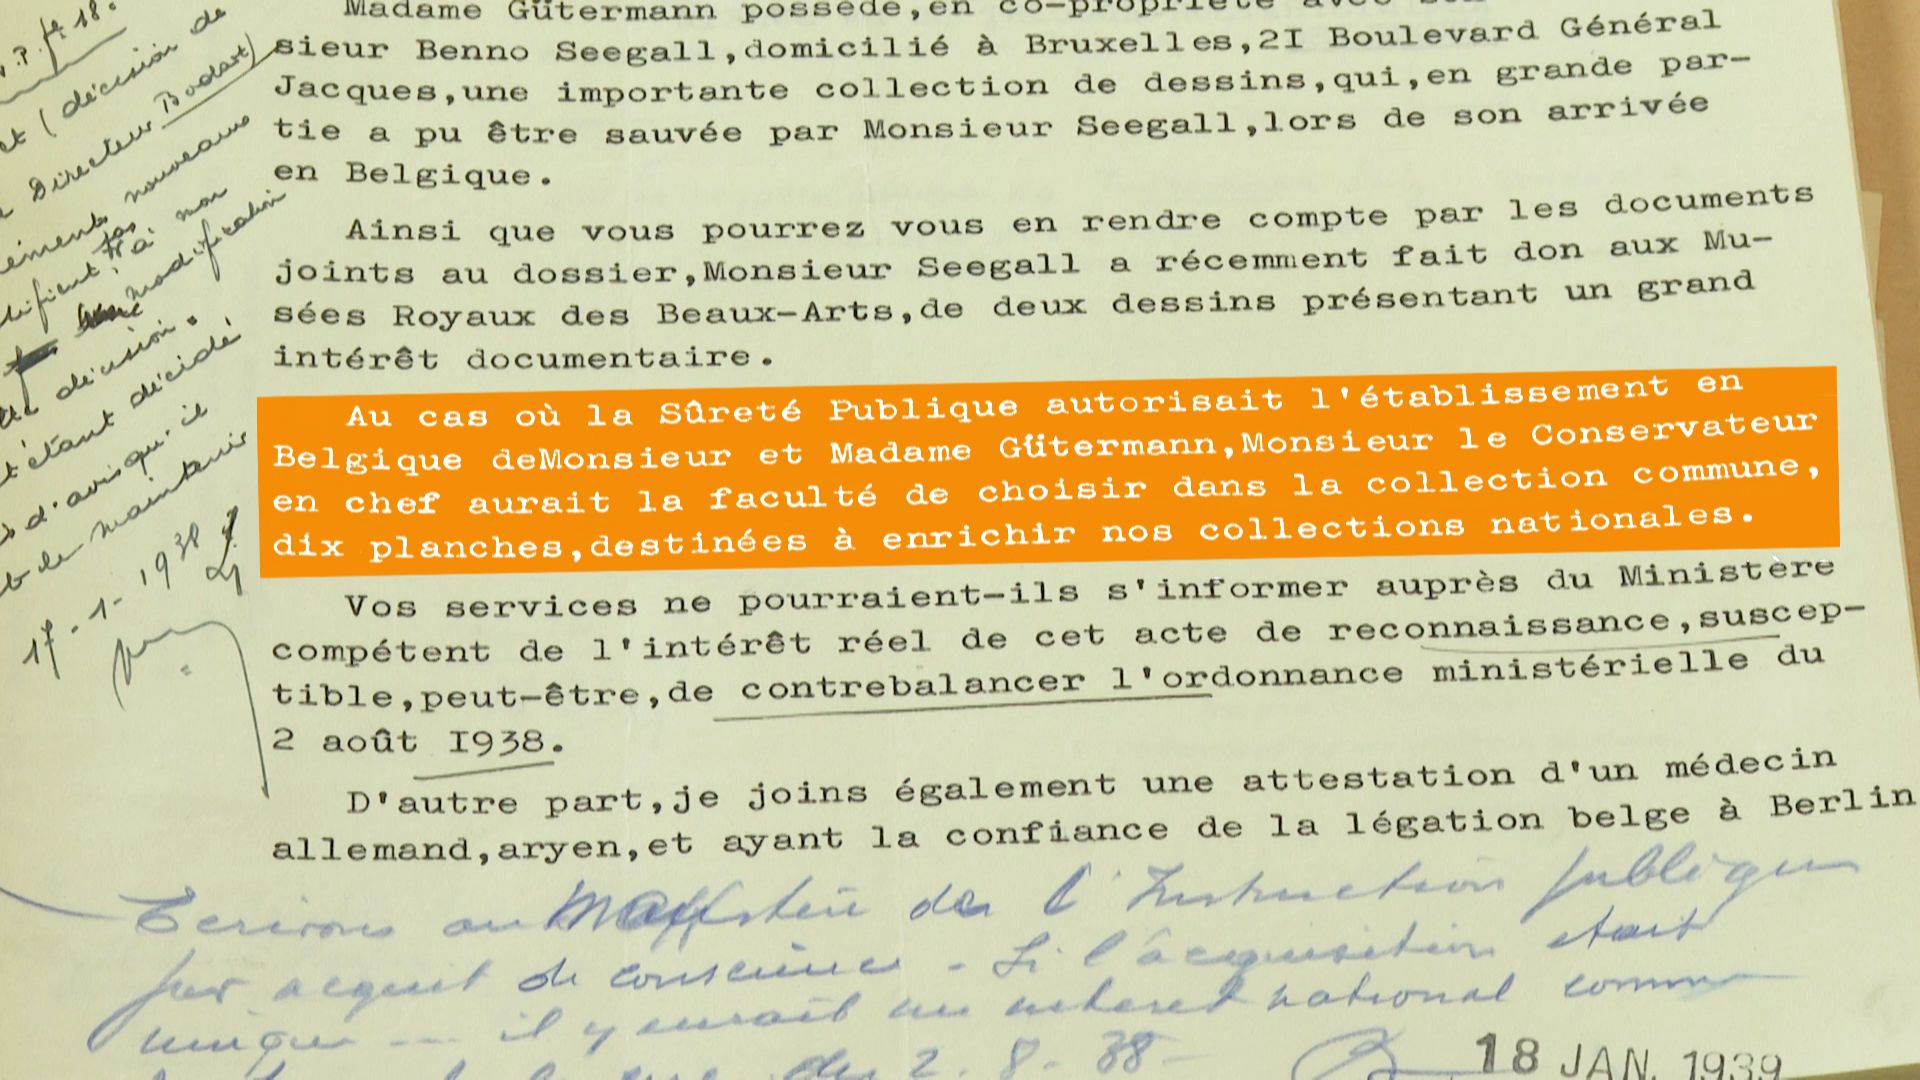 Madame Gütermann possède,en co-propriété avec
sieur Benno Seegall,domicilié à Bruxelles,2I Boulevard Général
Jacques,une importante collection de dessins,qui,en grande par-
tie a pu être sauvée par Monsieur Seegall,lors de son arrivée
en Belgique.
Ainsi que vous pourrez vous en rendre compte par les documents
joints au dossier,Monsieur Seegall a récemment fait don aux Mu-
sées Royaux des Beaux-Arts,de deux dessins présentant un grand
intérêt documentaire.
Au cas où la Sûreté Publique autorisait l'établissement en
Belgique deMonsieur et Madame Gütermann,Monsieur le Conservateur
en chef aurait la faculté de choisir dans la collection commune,
dix planches,destinées à enrichir nos collections nationales.
Vos services ne pourraient-ils s'informer auprès du Ministère
compétent de l'intérêt réel de cet acte de reconnaissance,suscep-
tible,peut-être,de contrebalancer l'ordonnance ministérielle du
2 août I938.
D'autre part,je joins également une attestation d'un médecin
allemand,aryen,et ayant la confiance de la légation belge à Berlin
(décision de
Directeur
nouveaux
à mon
modification
décision.
étant décidé
d'avis qu'il
de maintenir
17-1-1938
Ecrivons au de l'Instruction publique
par acquit de conscience - Si l'acquisition était
unique --- il y aurait un interet national comme
du 2.8.38 -
18 JAN. 1939